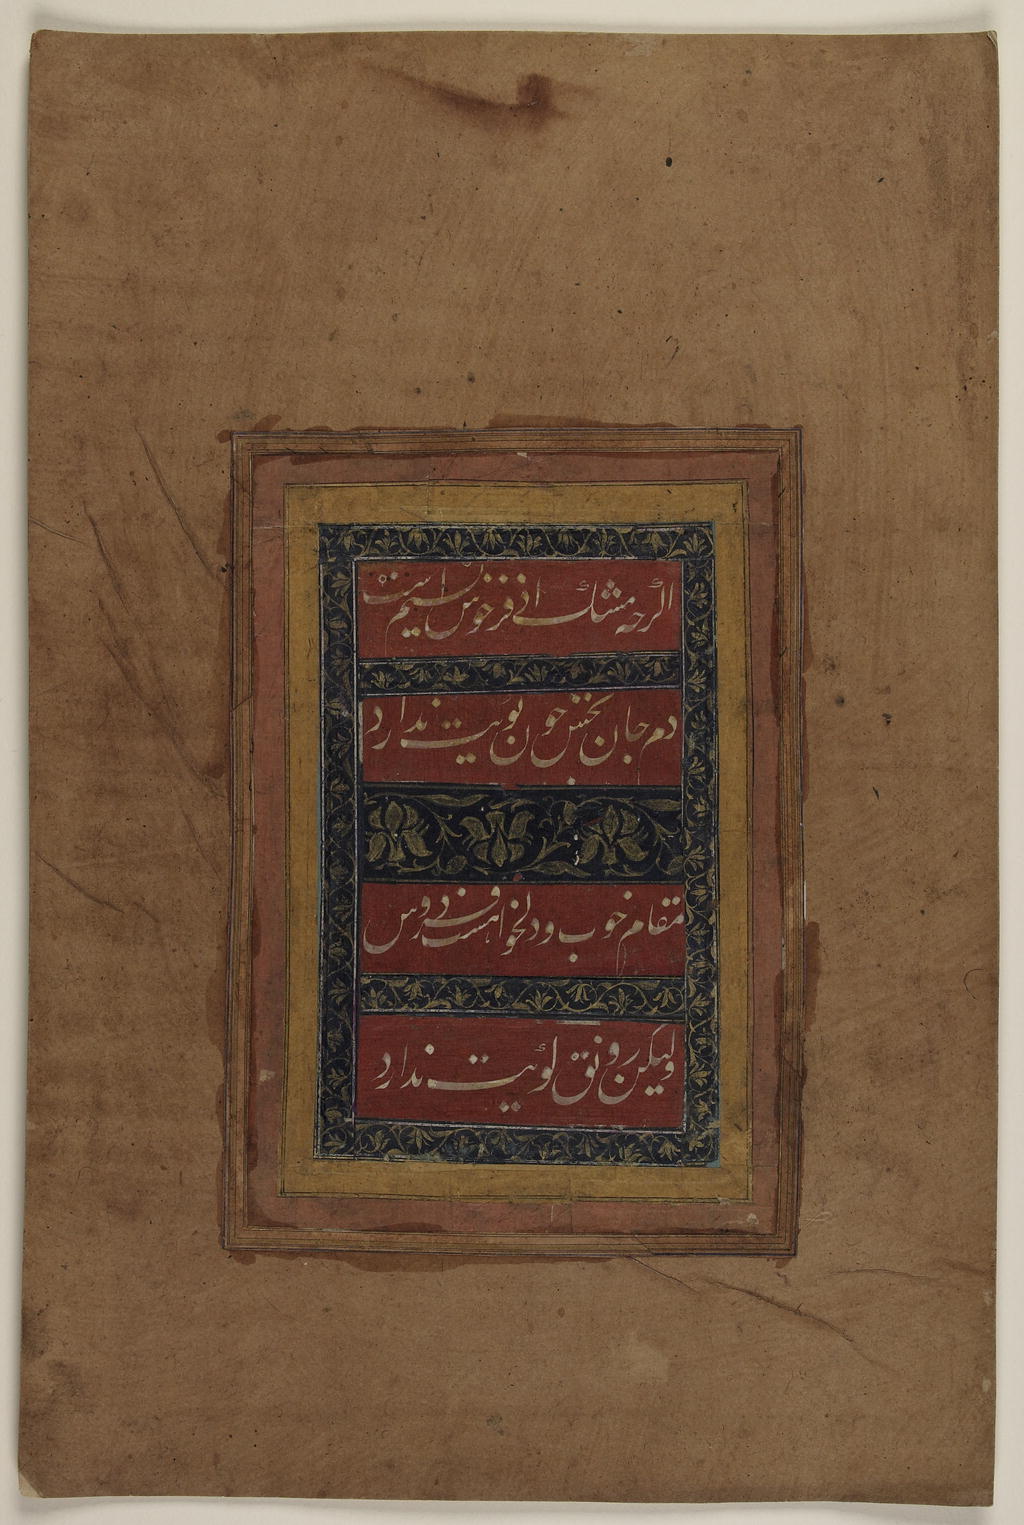 اگرچه مشک اذفر خوش نسیم است
دم جان بخش چون بویت ندارد
مقام خوب و دلخواهست فردوس
ولیکن رونق کویت ندارد